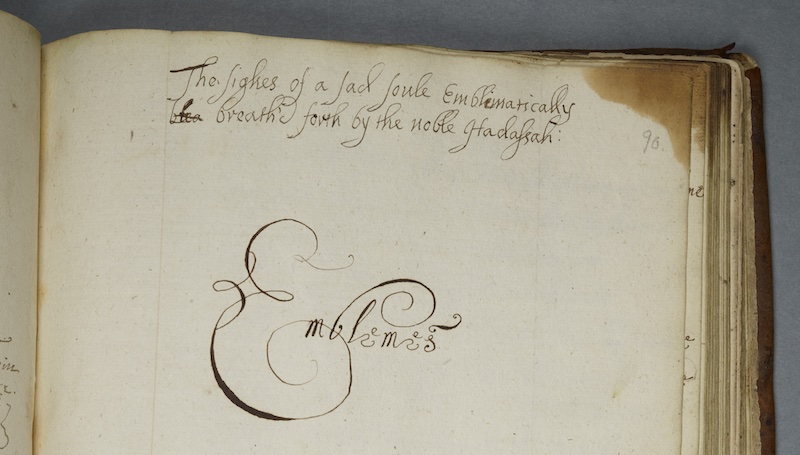 The sighes of a sad soule Emblimatically
breath'd forth by the noble Hadassah:
90.
Emblemes